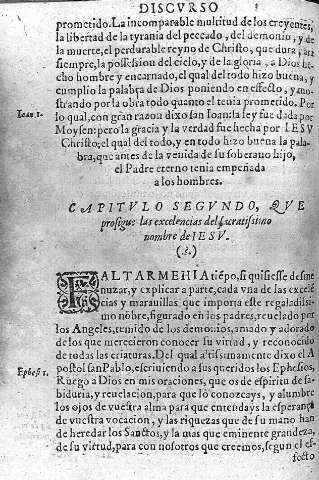 DISCVRSO
prometido. La incomparable multitud de los creyentes,
la libertad de la tyrania del peccado, del demonio, y de
la muerte, el perdurable reyno de Christo, que dura, para
siempre, la possession del cielo, y de la gloria, a Dios he-
cho hombre y encarnado, el qual del todo hizo buena, y
cumplio la palabra de Dios poniendo en effecto, y mo-
strando por la obra todo quanto el tenia prometido. Por
Ioan. 1.
lo qual, con gran razon dixo san Ioan: la ley fue dada por
Moysen: pero la gracia y la verdad fue hecha por IESV
Christo; el qual del todo, y en todo hizo buena la pala-
bra, que antes de la venida de su soberano hijo,
el Padre eterno tenia empeñada
a los hombres.
CAPITVLO SEGVNDO, QVE
prosigue las excelencias del sacratissimo
nombre de IESV.
(.?.)
FALTARMEHIA tiẽpo, si quisiesse desme
nuzar, y explicar a parte, cada vna de las excelẽ
cias y marauillas que importa este regaladissi
mo nõbre, figurado en los padres, reuelado por
los Angeles, temido de los demonios, amado y adorado
de los que merecieron conocer su virtud, y reconocido
de todas las criaturas. Del qual altissimamente dixo el A
Ephes. 1.
postol san Pablo, escriuiendo a sus queridos los Ephesios,
Ruego a Dios en mis oraciones, que os de espiritu de sa-
biduria, y reuelacion, para que lo conozcays, y alumbre
los ojos de vuestra alma para que entendays la esperança
de vuestra vocacion, y las riquezas que de su mano han
de heredar los Sanctos, y la mas que eminente grandeza,
de su virtud, para con nosotros que creemos, segun el ef-
fecto